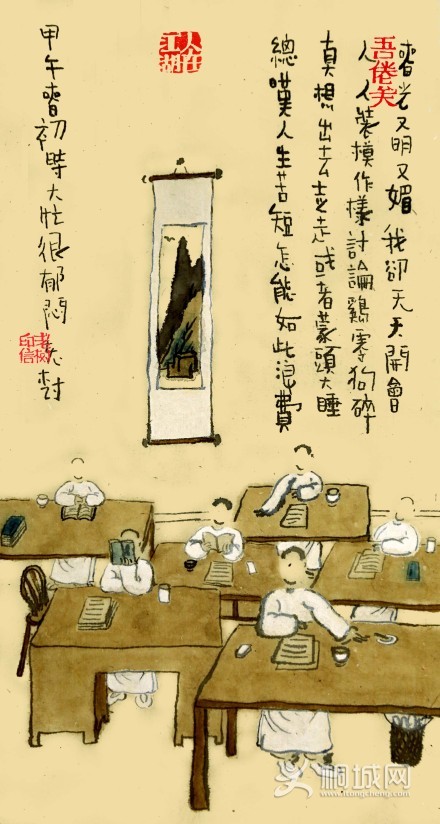 春光又明又媚 我卻天天開會
人人裝模作樣 討論鷄零狗碎
真想出去走走 或者蒙頭大睡
總嘆人生苦短 怎能如此浪費
人在江湖
甲午春初時大壯很郁悶 老树
桐城网
itongcheng.com